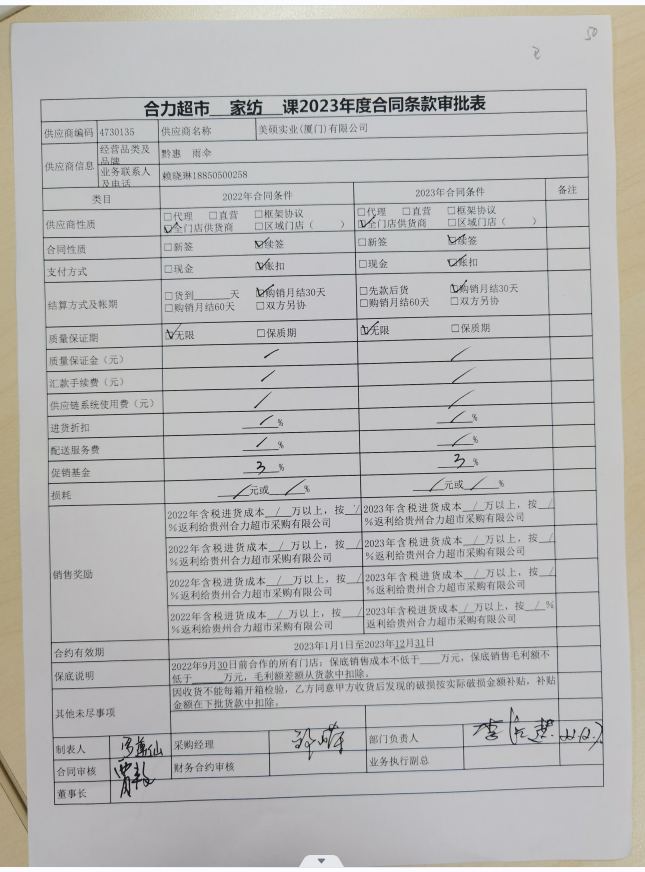 50
合力超市__家纺__课2023年度合同条款审批表
供应商编码 4730135 供应商名称 美硕实业(厦门)有限公司
供应商信息 经营品类及品牌 黔惠 雨伞
业务联系人及电话 赖晓琳18850500258
类目 2022年合同条件 2023年合同条件 备注
供应商性质 □代理 □直营 □框架协议 □代理 □直营 □框架协议
☑全门店供货商 □区域门店（ ） ☑全门店供货商 □区域门店（ ）
合同性质 □新签 ☑续签 □新签 ☑续签
支付方式 □现金 ☑账扣 □现金 ☑账扣
结算方式及帐期 □货到____天 ☑购销月结30天 □先款后货 ☑购销月结30天
□购销月结60天 □双方另协 □购销月结60天 □双方另协
质量保证期 ☑无限 □保质期 ☑无限 □保质期
质量保证金（元） / /
汇款手续费（元） / /
供应链系统使用费（元） / /
进货折扣 / % / %
配送服务费 / % / %
促销基金 3 % 3 %
损耗 / 元或 / % / 元或 / %
销售奖励 2022年含税进货成本_/_万以上，按_/ 2023年含税进货成本_/_万以上，按_/
%返利给贵州合力超市采购有限公司 %返利给贵州合力超市采购有限公司
2022年含税进货成本_/_万以上，按_/ 2023年含税进货成本_/_万以上，按_/
%返利给贵州合力超市采购有限公司 %返利给贵州合力超市采购有限公司
2022年含税进货成本_/_万以上，按_/ 2023年含税进货成本_/_万以上，按_/
%返利给贵州合力超市采购有限公司 %返利给贵州合力超市采购有限公司
2022年含税进货成本_/_万以上，按_/ 2023年含税进货成本_/_万以上，按_/_%
%返利给贵州合力超市采购有限公司 返利给贵州合力超市采购有限公司
合约有效期 2023年1月1日至2023年12月31日
保底说明 2022年9月30日前合作的所有门店：保底销售成本不低于____万元，保底销售毛利额不
低于______万元，毛利额差额从货款中扣除。
其他未尽事项 因收货不能每箱开箱检验，乙方同意甲方收货后发现的破损按实际破损金额补贴，补贴
金额在下批货款中扣除。
制表人 采购经理 部门负责人
合同审核 财务合约审核 业务执行副总
董事长